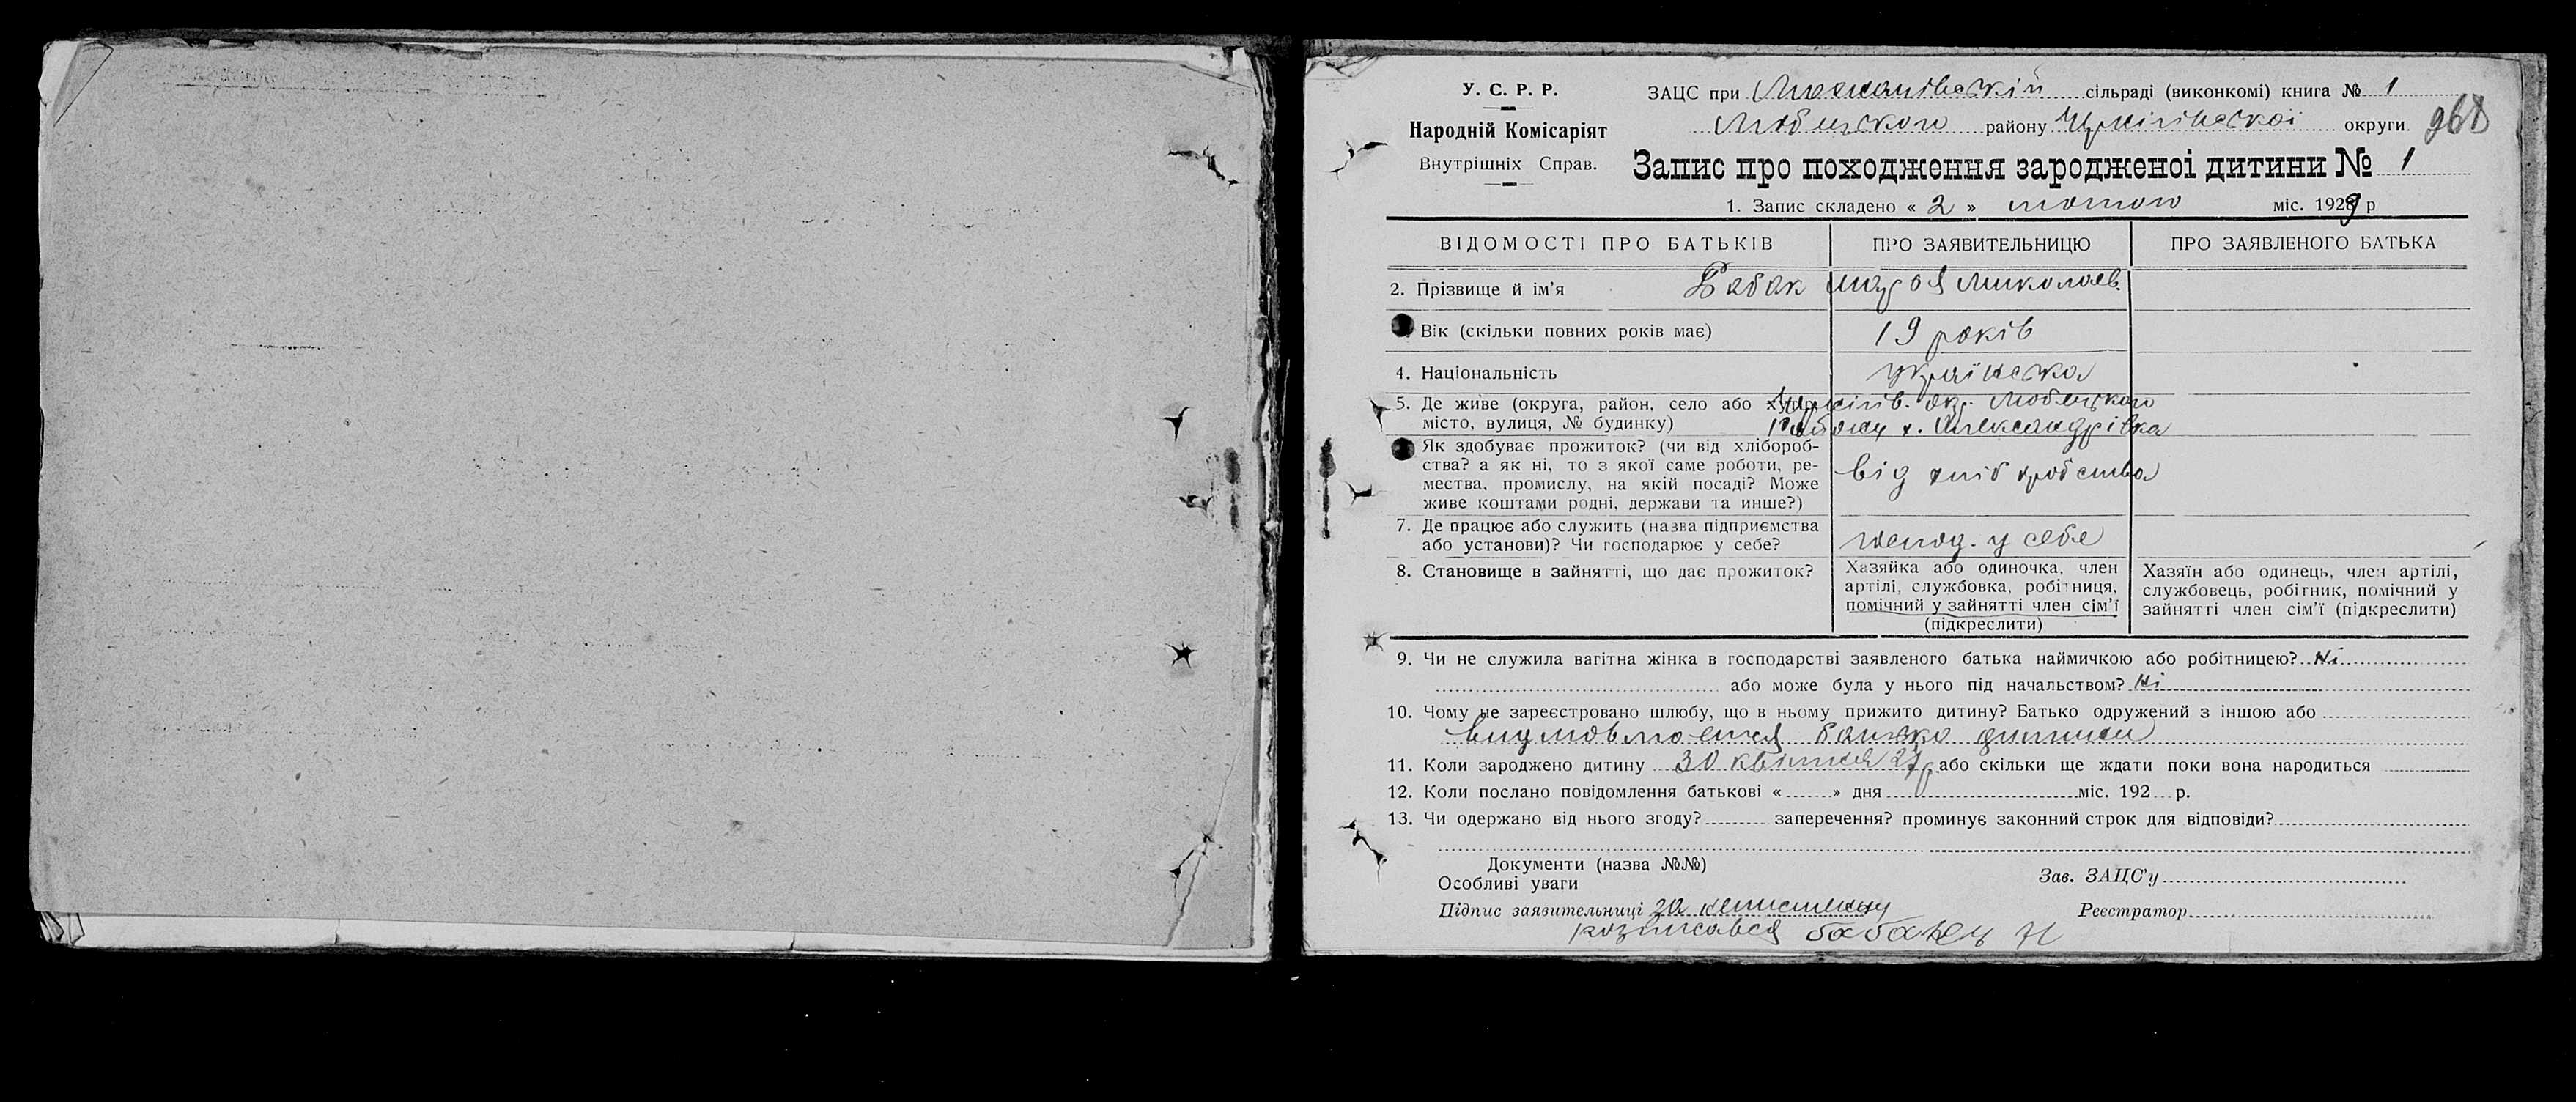 У. С. Р. Р.
Народній Комісаріят
Внутрішніх Справ.
ЗАЦС при сільраді (виконкомі) книга № 1
Любецького району Чернігівської округи 968
Запис про походження зародженої дитини № 1
1. Запис складено « 2 » лютого міс. 1929 р
ВІДОМОСТІ ПРО БАТЬКІВ
ПРО ЗАЯВИТЕЛЬНИЦЮ
ПРО ЗАЯВЛЕНОГО БАТЬКА
2. Прізвище й ім'я Бабак Миколаєв.
Вік (скільки повних років має) 19 років
4. Національність українська
5. Де живе (округа, район, село або хутір, Чернігів. окр. Любецького
місто, вулиця, № будинку) району х. Олександрівка
Як здобуває прожиток? (чи від хлібороб-
ства? а як ні, то з якої саме роботи, ре-
мества, промислу, на якій посаді? Може
живе коштами родні, держави та инше?)
від хліборобства
7. Де працює або служить (назва підприємства
або установи)? Чи господарює у себе?
господ. у себе
8. Становище в зайнятті, що дає прожиток?
Хазяйка або одиночка, член
артілі, службовка, робітниця,
помічний у зайнятті член сім'ї
(підкреслити)
Хазяїн або одинець, член артілі,
службовець, робітник, помічний у
зайнятті член сім'ї (підкреслити)
9. Чи не служила вагітна жінка в господарстві заявленого батька наймичкою або робітницею? ні
або може була у нього під начальством? ні
10. Чому не зареєстровано шлюбу, що в ньому прижито дитину? Батько одружений з іншою або
батько дитини
11. Коли зароджено дитину 30 квітня 27 р або скільки ще ждати поки вона народиться
12. Коли послано повідомлення батькові « » дня міс. 192 р.
13. Чи одержано від нього згоду? заперечення? проминує законний строк для відповіди?
Документи (назва №№)
Особливі уваги
Зав. ЗАЦС'у
Підпис заявительниці за неписменну
Реєстратор
розписався Бабанец Н